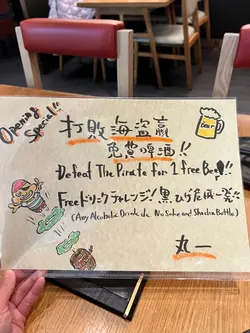 Opening Special!!
打敗海盜贏
免費啤酒!!
Beer
Defeat The Pirate for 1 free Beer!!
Freeドリンクチャレンジ! 黒ひげ危機一発!!
(Any Alcoholic Drink
No Sake and Shochu Bottle)
丸一